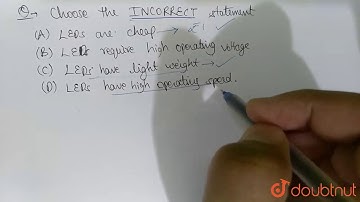 Q→ Choose the INCORRECT statement
(A) LEDs are cheap → ✓
(B) LEDs require high operating voltage
(C) LEDs have light weight → ✓
(D) LEDs have high operating speed.
doubtnut